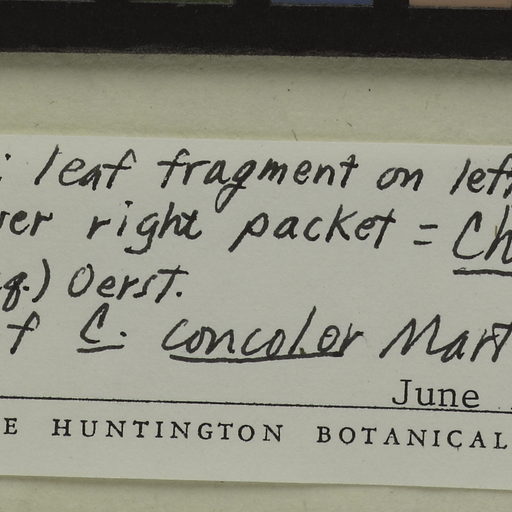 : leaf fragment on left
wer right packet = Ch
cq.) Oerst.
f C. concolor Mart
June
E HUNTINGTON BOTANICAL